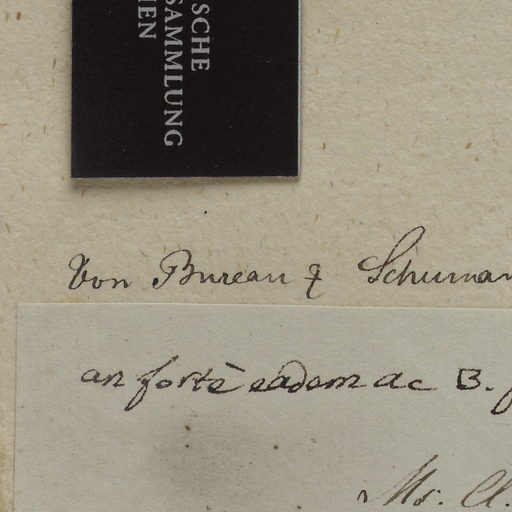 SCHE
SAMMLUNG
IEN
Von Bureau & Schuman
an fortè eadem ac B.
Mr. Cl.